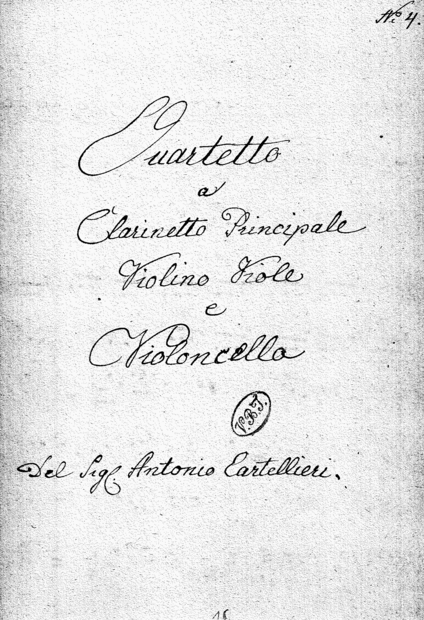 No. 4.
Quartetto
a
Clarinetto Principale
Violino Viole
e
Violoncello
V.B.J.
Del Sigl. Antonio Cartellieri.
18